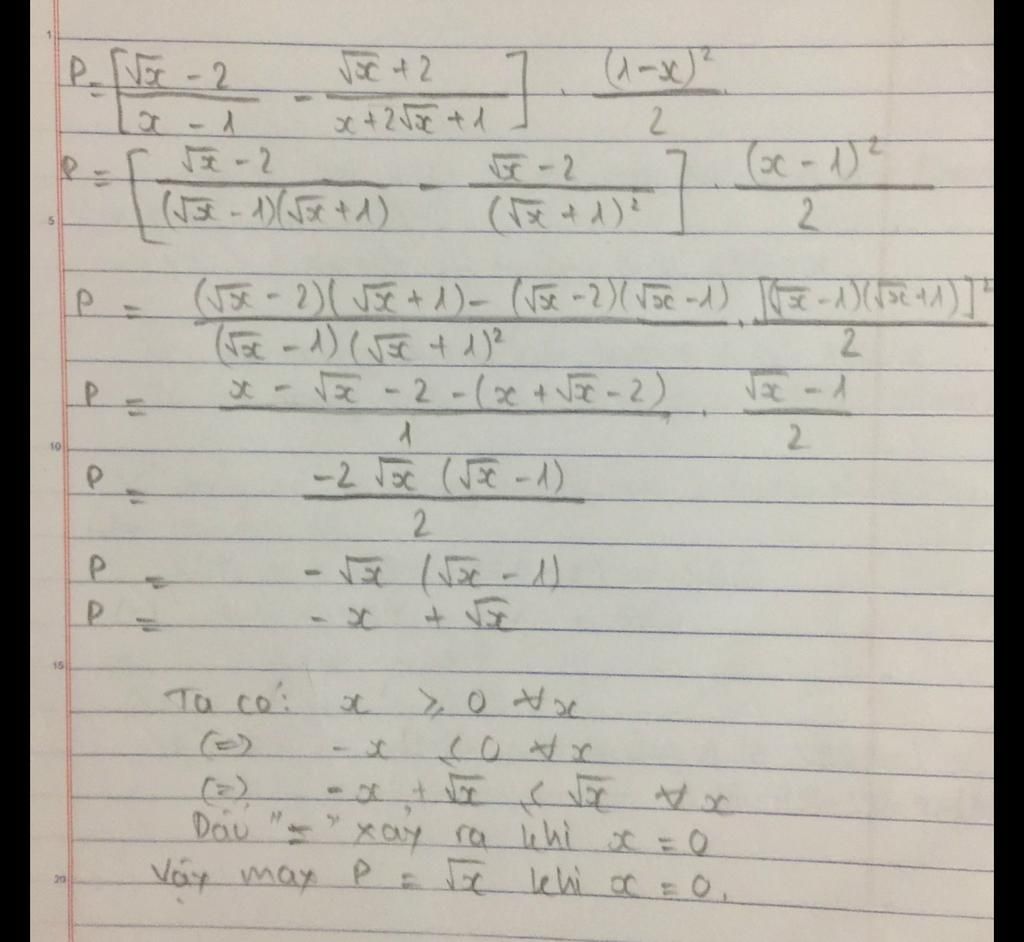 1
P = [ (√x - 2)/(x - 1) - (√x + 2)/(x + 2√x + 1) ] . (1-x)²/2
P = [ (√x - 2)/((√x - 1)(√x + 1)) - (√x - 2)/((√x + 1)²) ] . (x - 1)²/2
5
P = ((√x - 2)(√x + 1) - (√x - 2)(√x - 1))/((√x - 1)(√x + 1)²) . [(√x - 1)(√x + 1)]²/2
P = (x - √x - 2 - (x + √x - 2))/1 . (√x - 1)/2
10
P = (-2√x (√x - 1))/2
P = - √x (√x - 1)
P = - x + √x
15
Ta có: x ≥ 0 ∀x
(=) - x ≤ 0 ∀x
(=) - x + √x ≤ √x ∀x
Dấu "=" xảy ra khi x = 0
20
Vậy max P = √x khi x = 0.